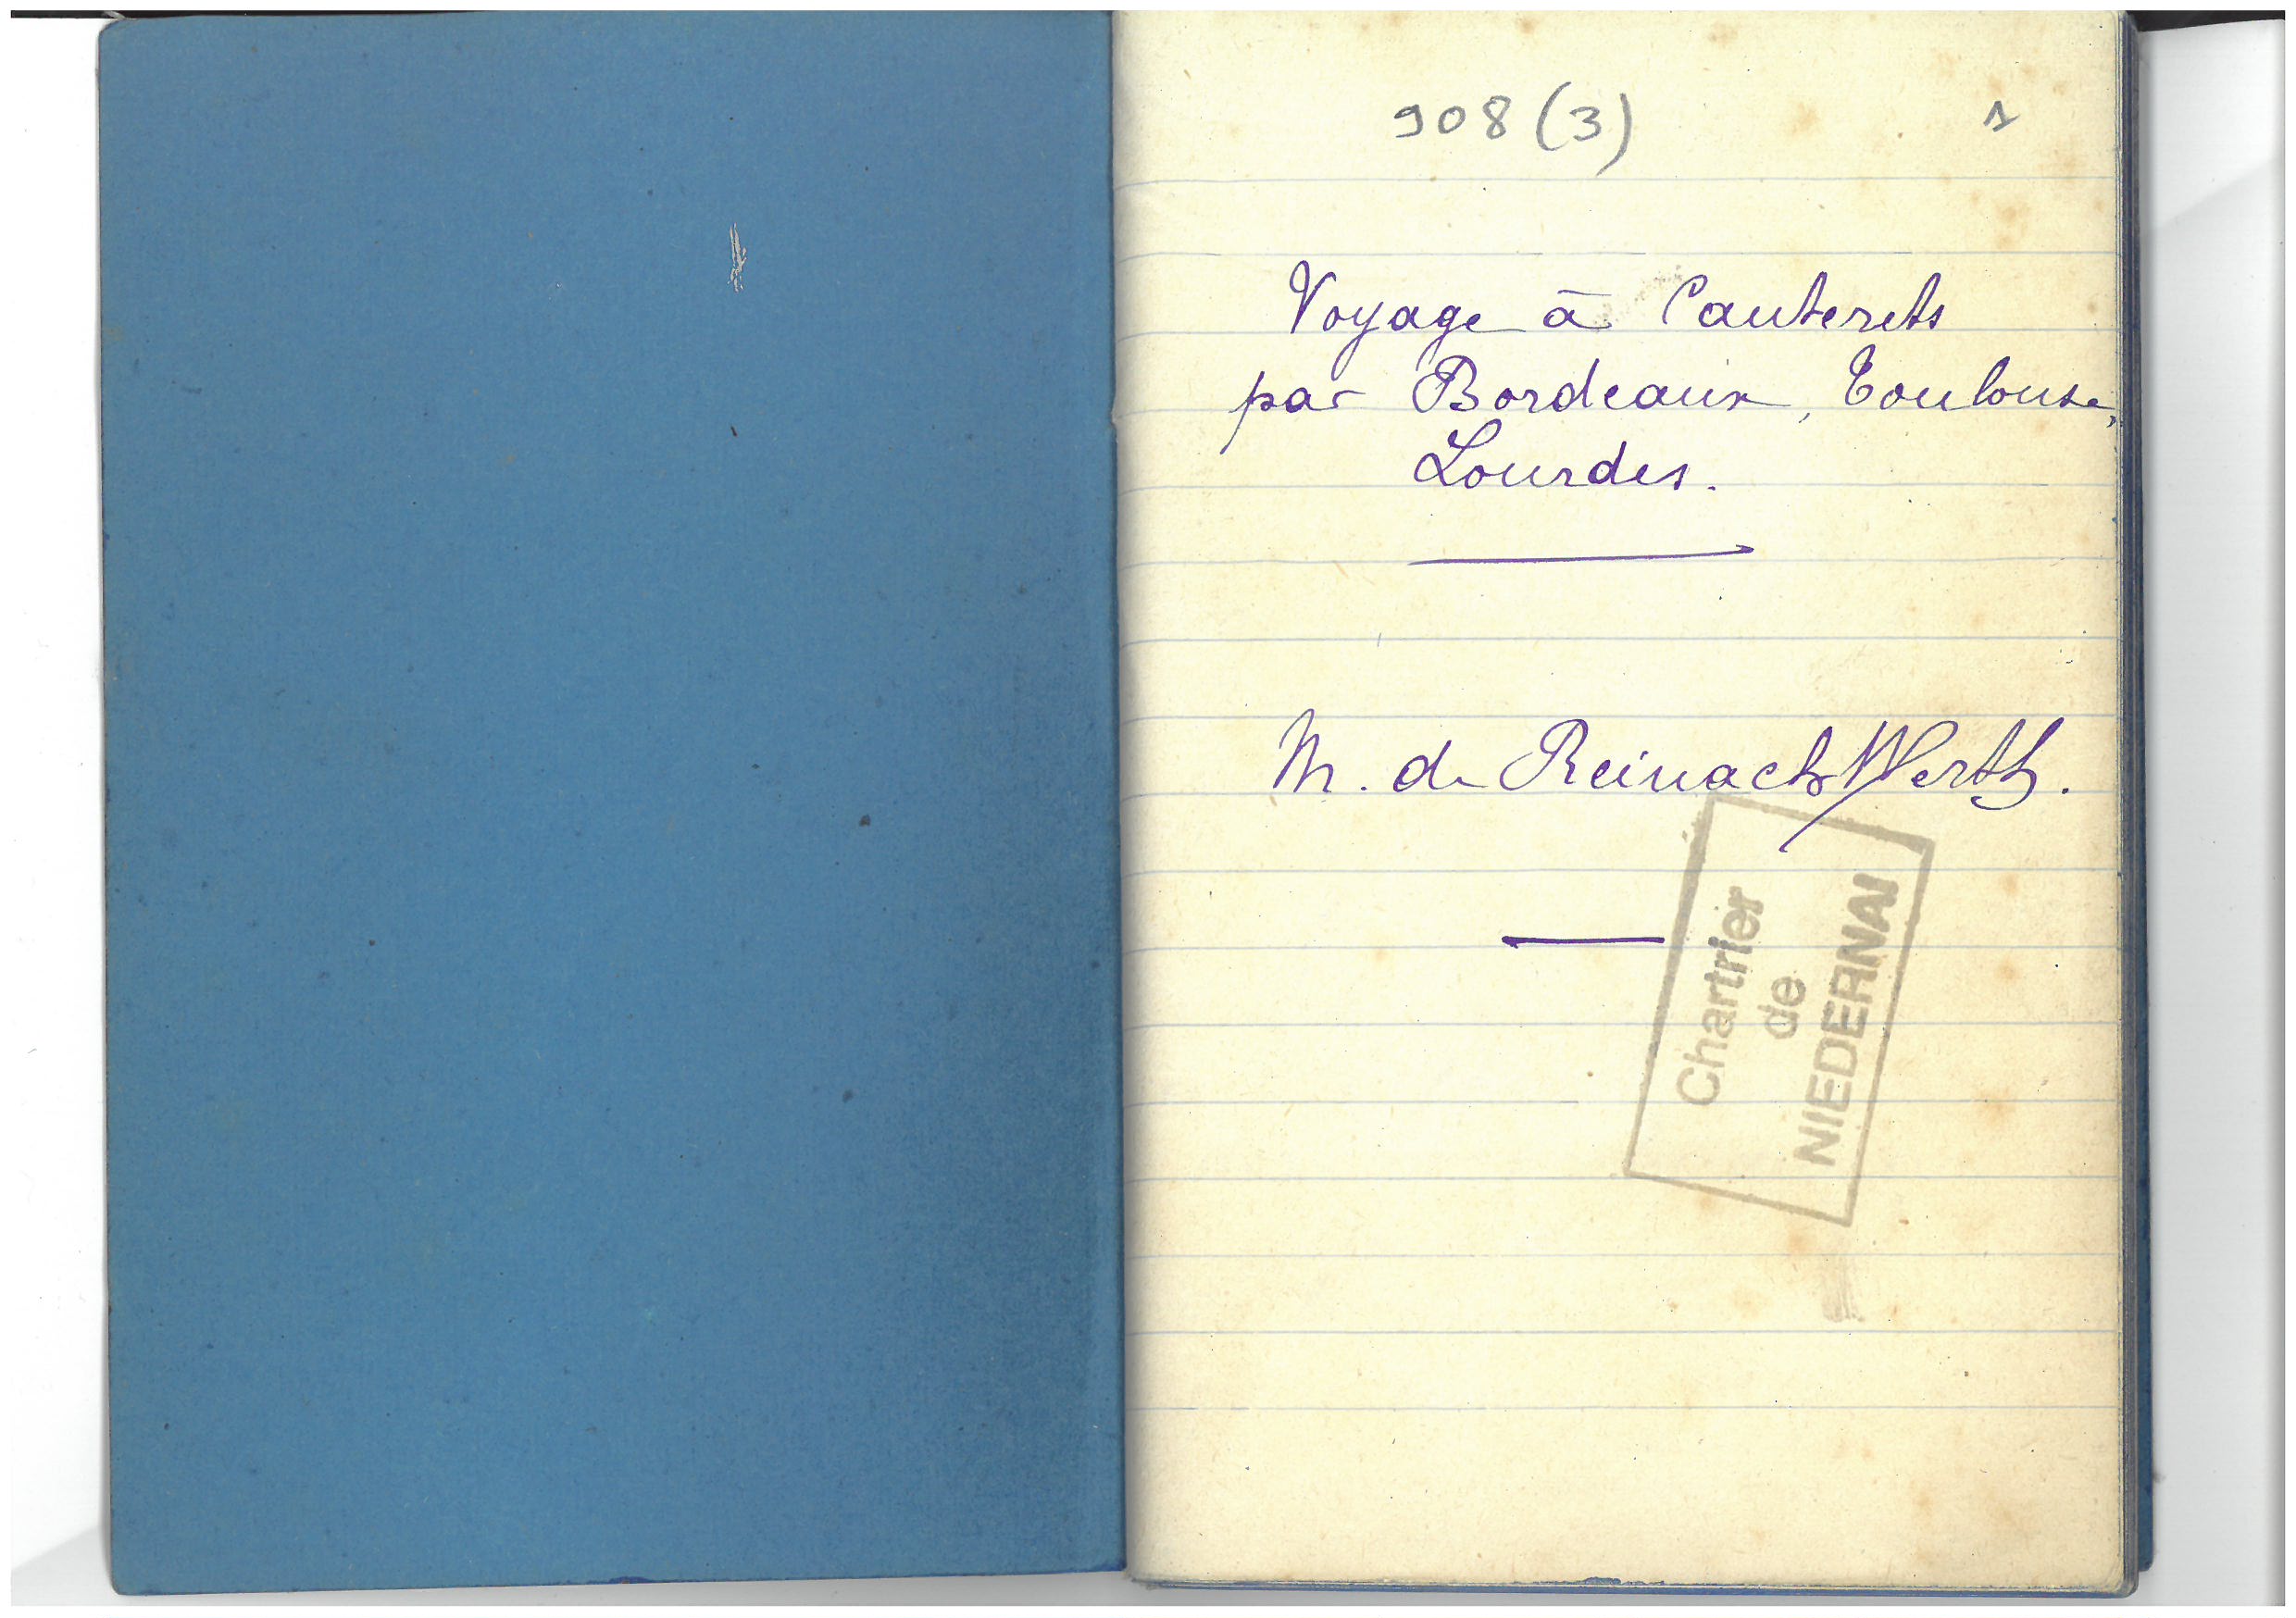 908 (3) 1
Voyage à Cauterets
par Bordeaux, Toulouse,
Lourdes.
M. de Reinach Werth.
Chartrier
de
NIEDERNAI